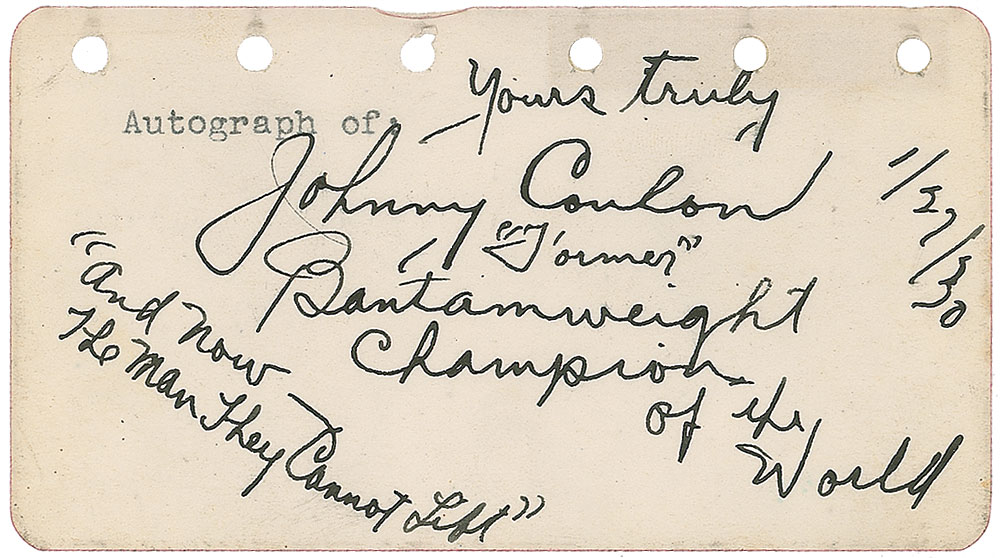 Yours truly
Autograph of:
Johnny Coulon
1/27/30
"Former"
Bantamweight
Champion
of the
World
"And Now
The Man They Cannot Lift"